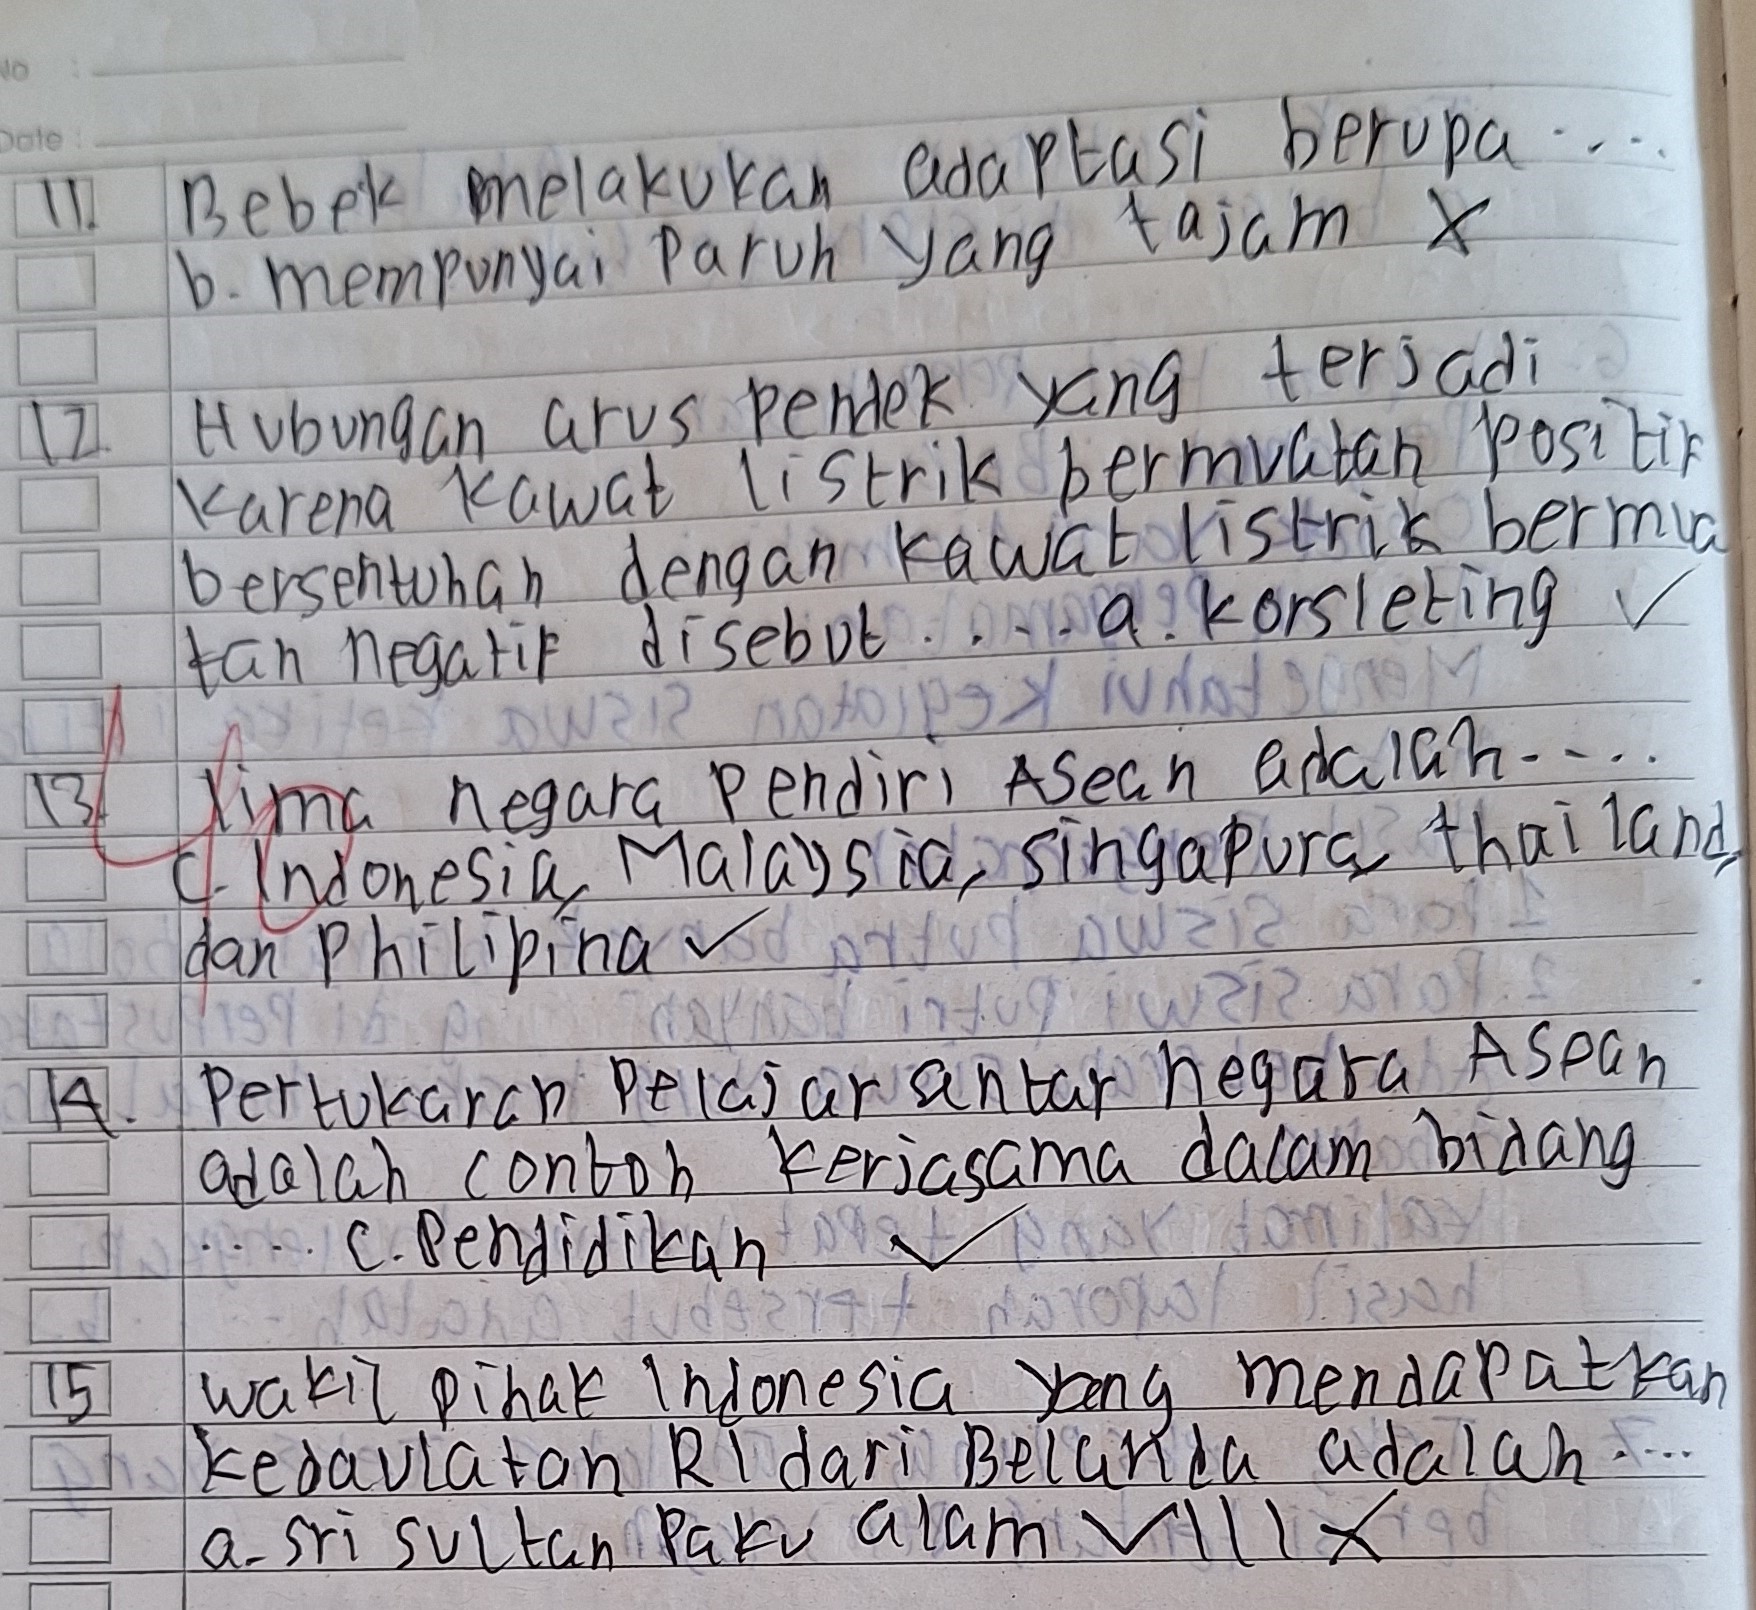 No :
Date :
11. Bebek melakukan adaptasi berupa ....
b. mempunyai Paruh yang tajam X
12. Hubungan arus pendek yang terjadi
karena kawat listrik bermuatan positif
bersentuhan dengan kawat listrik bermua
tan negatif disebut ..... a. korsleting ✓
13. lima negara Pendiri Asean adalah ....
c. Indonesia, Malaysia, singapura, thailand,
dan Philipina ✓
14. Pertukaran Pelajar antar negara Asean
adalah contoh kerjasama dalam bidang
..... c. Pendidikan ✓
15 wakil pihak Indonesia yang mendapatkan
kedaulatan RI dari Belanda adalah ....
a. Sri sultan Paku alam VIII X